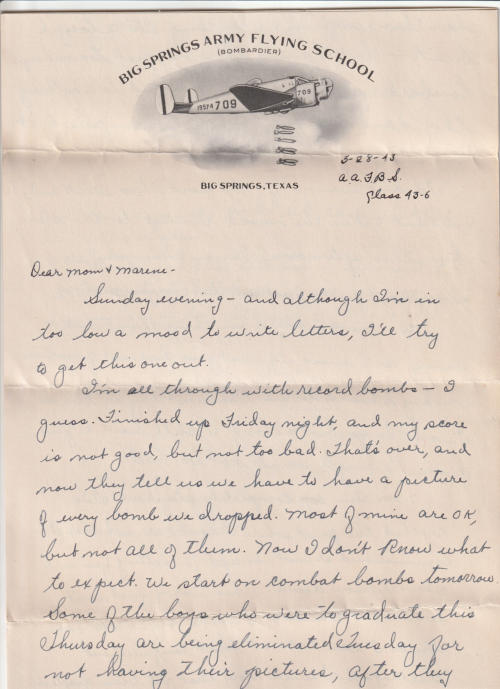 BIG SPRINGS ARMY FLYING SCHOOL
(BOMBARDIER)
19574 709
709
BIG SPRINGS, TEXAS
3-28-43
A.A.F.B.S.
Class 43-6
Dear Mom & Marene-
Sunday evening - and although I'm in
too low a mood to write letters, I'll try
to get this one out.
I'm all through with record bombs - I
guess. Finished up Friday night, and my score
is not good, but not too bad. That's over, and
now they tell us we have to have a picture
of every bomb we dropped. Most of mine are OK,
but not all of them. Now I don't know what
to expect. We start on combat bombs tomorrow.
Some of the boys who were to graduate this
Thursday are being eliminated Tuesday for
not having their pictures, after they